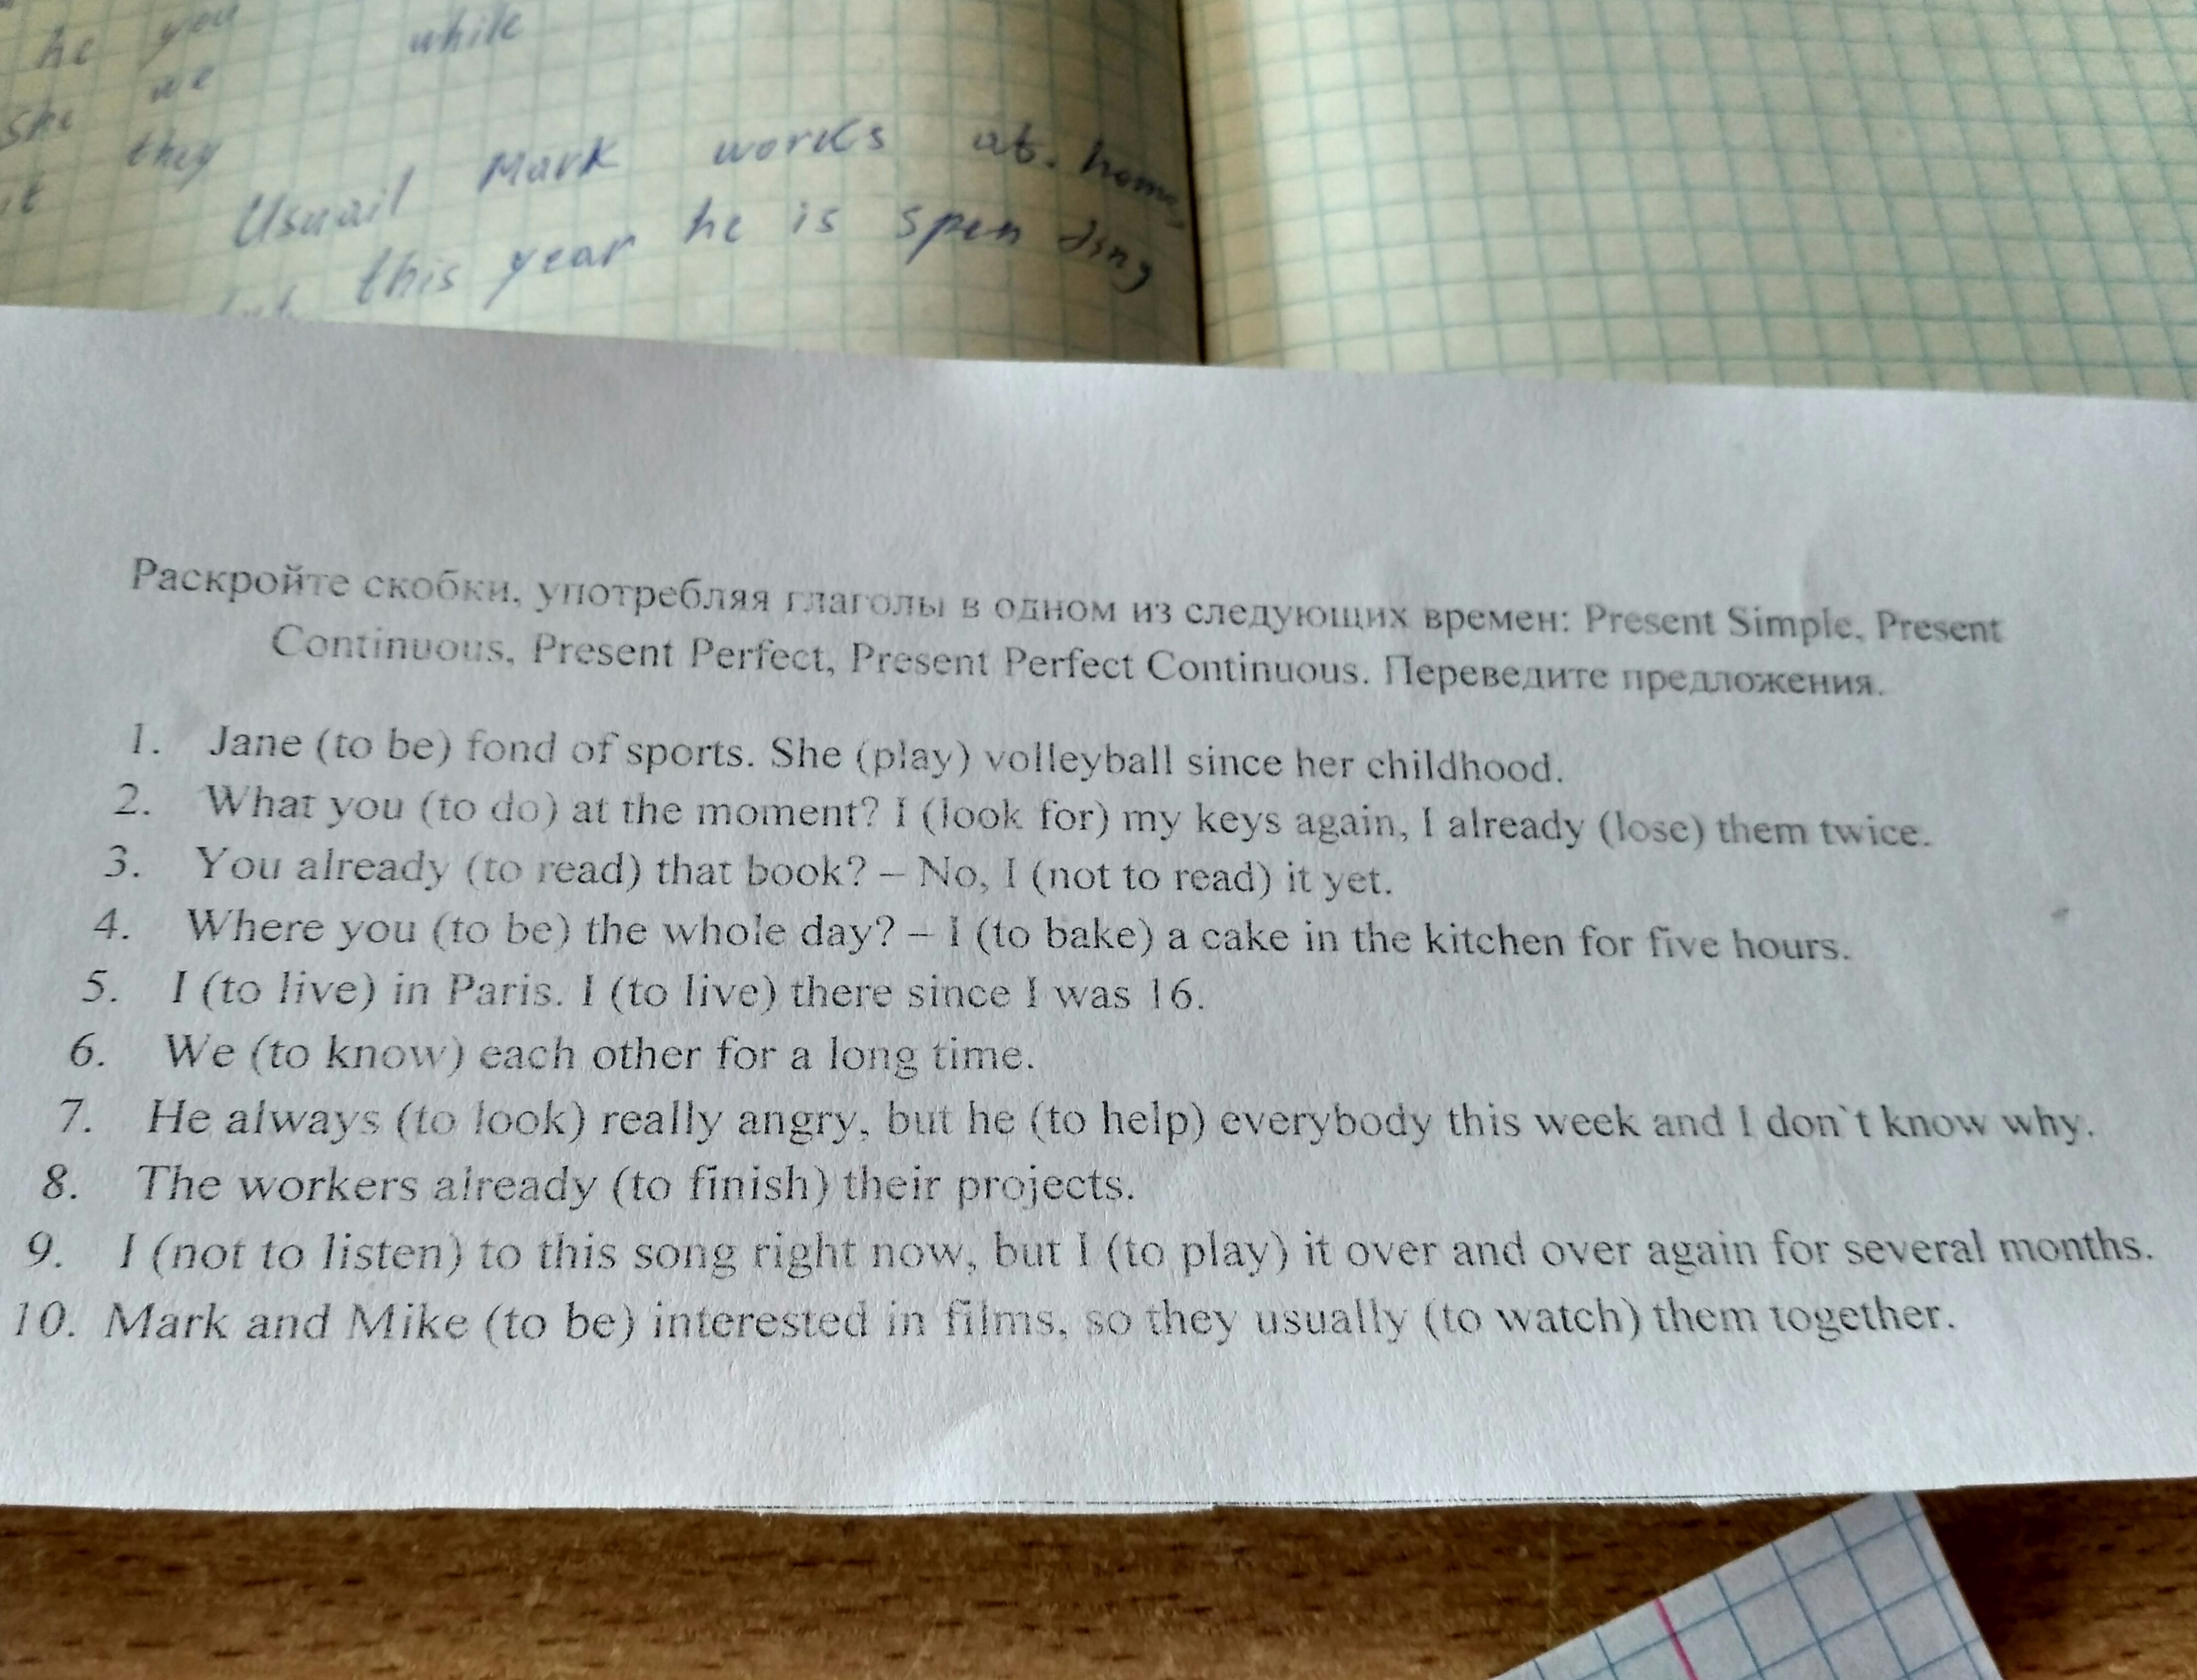 he you while
she we
it they
Usuail Mark works at home,
this year he is spen ding
Раскройте скобки, употребляя глаголы в одном из следующих времен: Present Simple, Present
Continuous, Present Perfect, Present Perfect Continuous. Переведите предложения.
1. Jane (to be) fond of sports. She (play) volleyball since her childhood.
2. What you (to do) at the moment? I (look for) my keys again, I already (lose) them twice.
3. You already (to read) that book? – No, I (not to read) it yet.
4. Where you (to be) the whole day? – I (to bake) a cake in the kitchen for five hours.
5. I (to live) in Paris. I (to live) there since I was 16.
6. We (to know) each other for a long time.
7. He always (to look) really angry, but he (to help) everybody this week and I don`t know why.
8. The workers already (to finish) their projects.
9. I (not to listen) to this song right now, but I (to play) it over and over again for several months.
10. Mark and Mike (to be) interested in films, so they usually (to watch) them together.